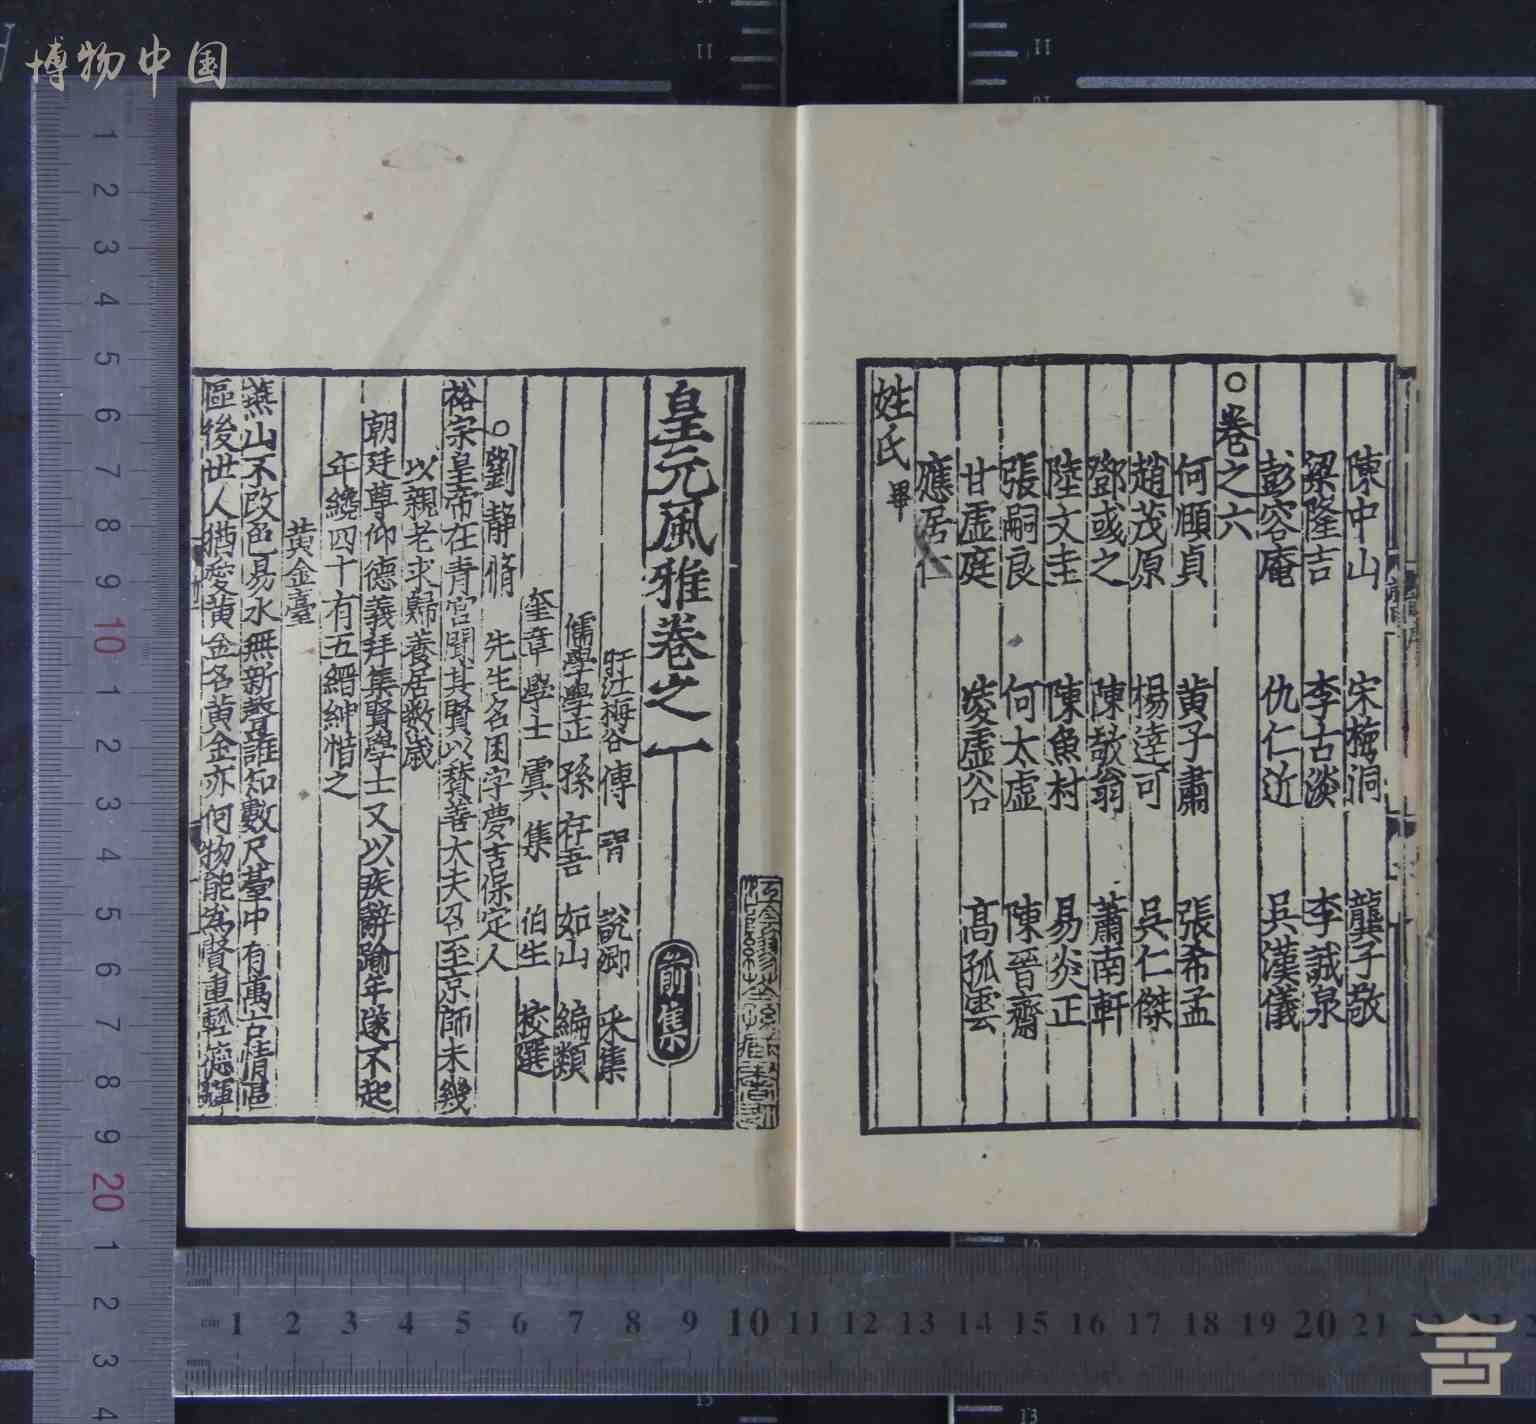 博物中国
陳中山 宋梅洞 龔子敬
梁隆吉 李古淡 李誠泉
彭容庵 仇仁近 吳漢儀
○卷之六
何願貞 黄子肅 張希孟
趙茂原 楊逹可 吳仁傑
鄧彧之 陳㪚翁 蕭南軒
陸文圭 陳魚村 易炎正
張嗣良 何太虛 陳晉齋
甘虛庭 凌虛谷 高孤雲
應居仁
姓氏畢
皇元風雅卷之一 前集
旴江梅谷傅習說卿采集
儒學學正孫存吾如山編類
奎章學士虞集伯生校選
○劉静脩 先生名因字夢吉保定人
裕宗皇帝在青宮聞其賢以賛善大夫召至京師未幾
以親老求歸養居數歲
朝廷尊仰德義拜集賢學士又以疾辭踰年遂不起
年纔四十有五縉紳惜之
黄金臺
燕山不改色易水無新聲誰知數尺臺中有萬古情區
區後世人猶愛黄金名黄金亦何物能為賢重輕德輝
1 2 3 4 5 6 7 8 9 10 1 2 3 4 5 6 7 8 9 20 1 2 3 4
cm 1 2 3 4 5 6 7 8 9 10 11 12 13 14 15 16 17 18 19 20 21 22 23